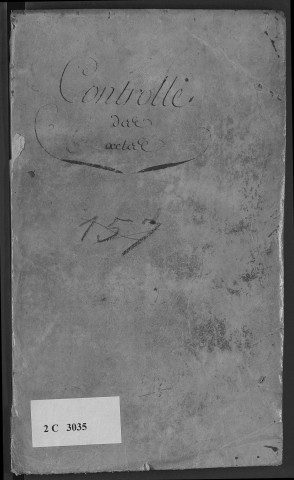 Controlle
des
actes
157
2 C 3035